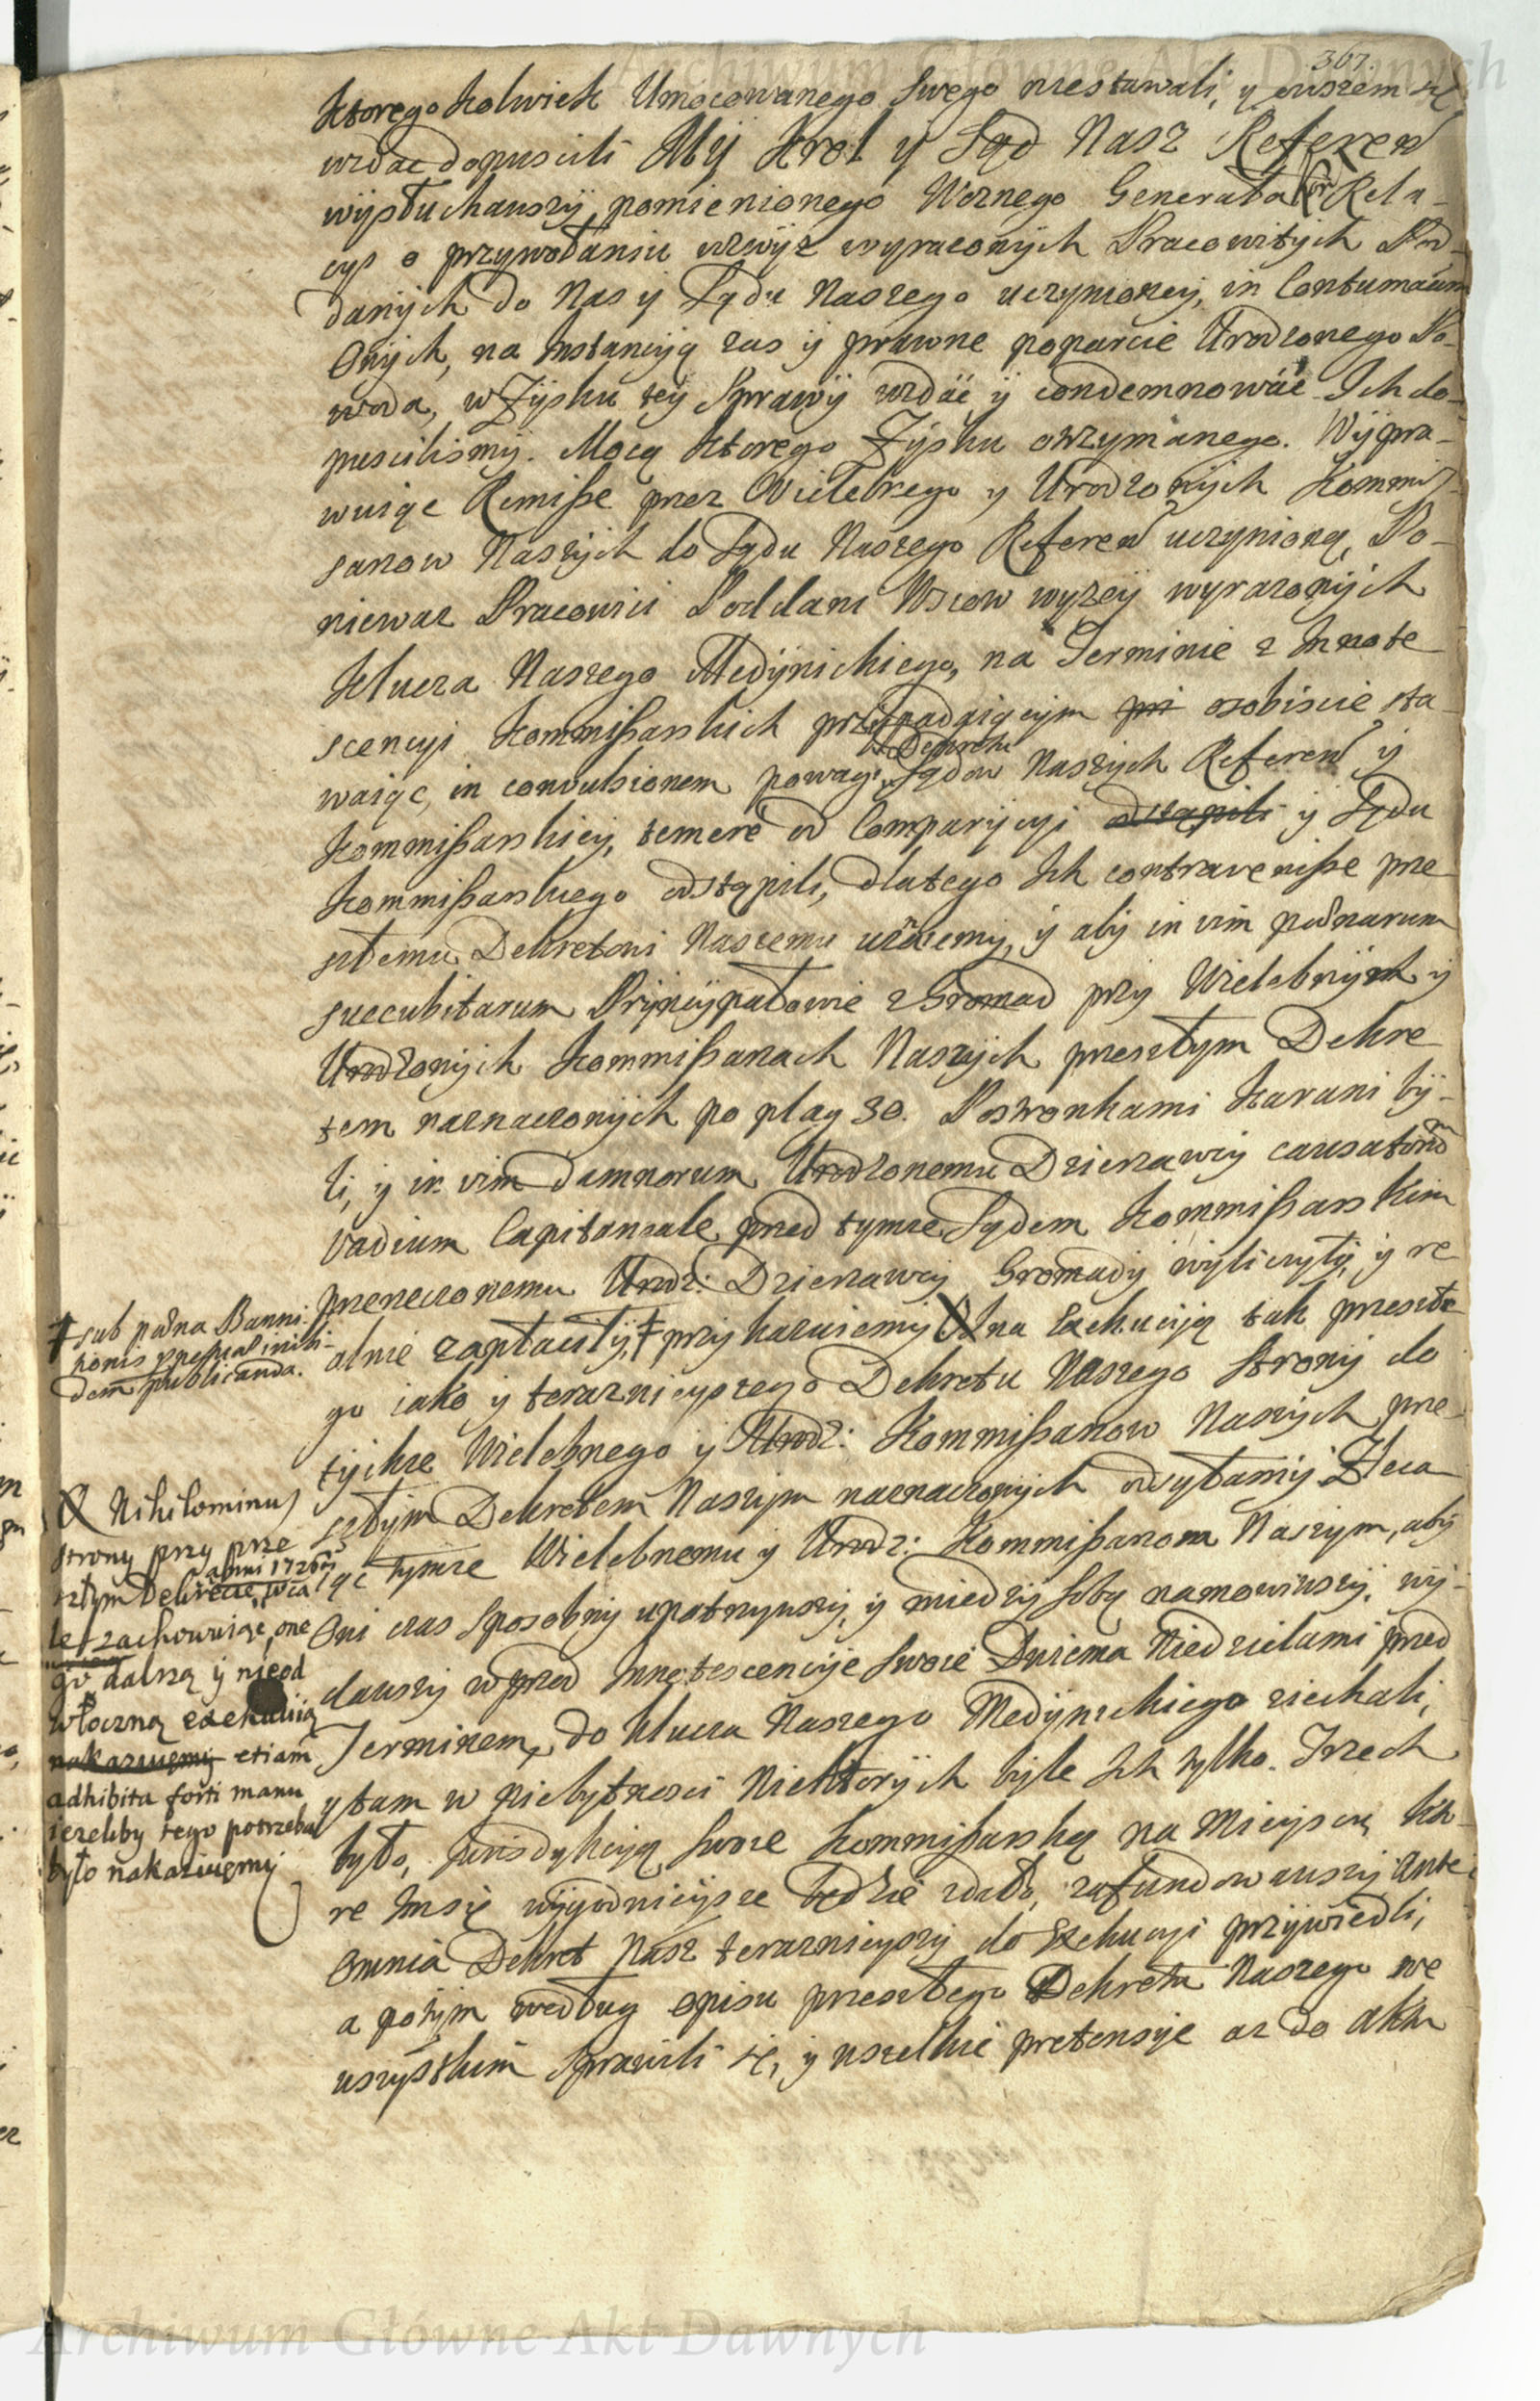 Archiwum Główne Akt Dawnych
367.
ktoregokolwiek Umocowanego swego niestawali, y owszem się
wzdac dopuscili My Krol y Sąd Nasz Referen
wysłuchawszy pomienionego Woznego Generała Rela-
cyą o przywołaniu wzwyż wyrazonych Pracowitych Pod-
danych do Nas y Sądu Naszego uczynioney, in Contumaciam
Onych, na Instancyą zas y prawne poparcie Urodzonego Po-
woda, w Zysku tey Sprawy wzdać y condemnować Ich do-
puscilismy. Mocą ktorego Zysku otrzymanego. Wypra-
wuiąc Remisse przez Wielebnego y Urodzonych Kommis-
sarzow Naszych do Sądu Naszego Referen uczynioną, Po-
niewaz Pracowici Poddani Wsiow wyzey wyrazonych
Klucza Naszego Medynickiego, na Terminie z Innote
scencyi Kommissarskich przypadaiącym osobiscie sta
waiąc, in convulsionem powagi Dekretu Sądow Naszych Referen y
Kommissarskiey, temere od Comparycyi odstąpili y Sądu
Kommissarskiego odstąpili, dlatego Ich contravenisse prze
szłemu Dekretowi Naszemu uznaiemy, y aby in vim pænarum
succubitarum Pryncypałowie z Gromad przy Wielebnych y
Urodzonych Kommissarzach Naszych przeszłym Dekre
tem naznaczonych po plag 30. Postronkami karani by-
li, y in vim damnorum Urodzonemu Dzierzawcy causatorum
Vadium Capitaneale przed tymze Sądem Kommissarskim
przerzeczonemu Urodz: Dzierzawcy Gromady wyliczyły, y re
alnie zapłaciły, ꝉ przykazuiemy X na Exekucyą tak przeszłe
go iako y teraznieyszego Dekretu Naszego Strony do
tychze Wielebnego y Urodz: Kommissarzow Naszych prze
szłym Dekretem Naszym naznaczonych odsyłamy Zleca
iąc tymze Wielebnemu y Urodz: Kommissarzom Naszym, aby
Oni czas sposobny upatrzywszy, y miedzy sobą namowiwszy, wy-
dawszy wprzod Innotescencye swoie Dwiema Niedzielami przed
Terminem, do klucza Naszego Medynickiego ziechali,
y tam w niebytnosci Niektorych byle Ich tylko. Trzech
było, Jurisdykcyą swoie Kommissarską na Mieyscu, kto-
re Im się wygodnieysze będzie zdało, zafundowawszy Ante
Omnia Dekret Nasz teraznieyszy do Exekucyi przywiedli,
a potym według opisu przeszłego Dekretu Naszego we
wszystkim sprawili się, y wszelkie pretensye az do aktu
ꝉ sub pæna Banni-
tionis perpetuæ inibi-
dem publicanda.
X Nihilominus
strony przy prze
szłym Dekrecie anni 1726ty wca
le zachowuiąc, one
go dalszą y nieod
włoczną exekucyią
nakazuiemy etiam
adhibita forti manu
iezeliby tego potrzeba
było nakaziuemy
Archiwum Główne Akt Dawnych